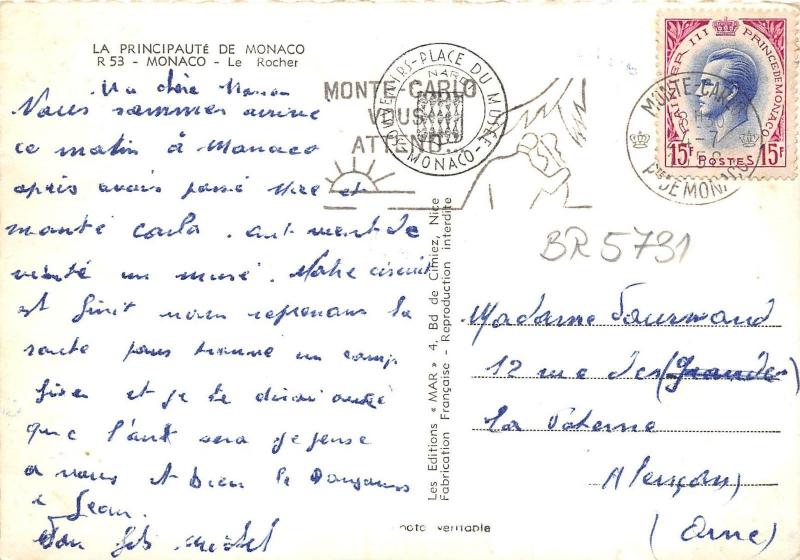 LA PRINCIPAUTÉ DE MONACO
R 53 - MONACO - Le Rocher
Ma chère Maman
Nous sommes arrivé
ce matin à Monaco
après avoir passé Nice et
monté carlo. avant de
visité un musé. Notre circuit
est finit nous reprenons la
route pour trouvé un camp
fixe et je te dirai
que l'aut sera
a vous et bien le Bonjour
à Jean.
Ton fils michel
MONTE-CARLO
VOUS
ATTEND
PLACE DU MUSÉE
MONACO
RAINIER III PRINCE DE MONACO
15F POSTES 15F
MONTE-CARLO
PTÉ DE MONACO
BR 5791
Madame Tourmand
12 rue des (Grande
La
Alençon
(Orne)
Les Editions « MAR » 4, Bd de Cimiez, Nice
Fabrication Française - Reproduction interdite
photo véritable